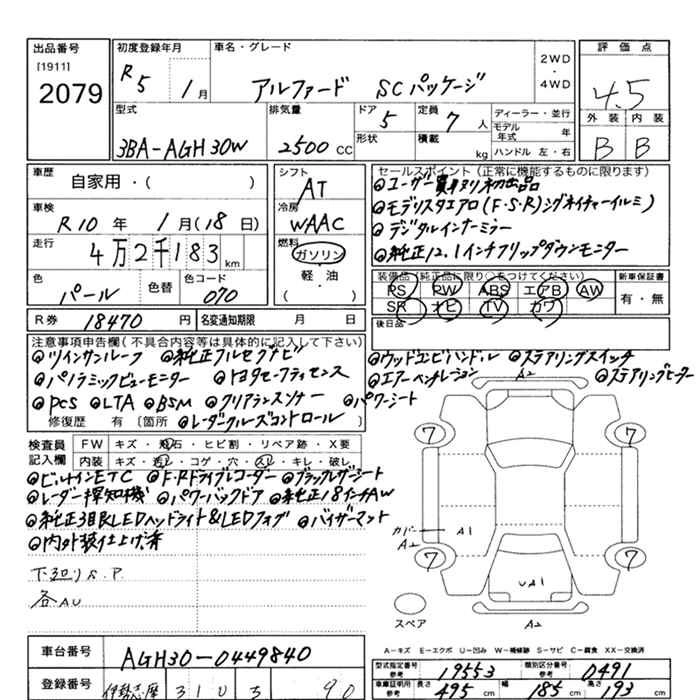 出品番号 初度登録年月 車名・グレード 2WD・4WD 評価点
[1911]
2079 R5年 1月 アルファード SCパッケージ 4.5
型式 排気量 ドア 定員 ディーラー・並行 外装 内装
3BA-AGH30W 2500CC 5 7人 モデル年式 年 B B
形状 積載 kg ハンドル 左・右
車歴 自家用・( ) シフト AT
セールスポイント(正常に機能するものに限ります)
ユーザー買取り初出品
モデリスタエアロ(F・S・R)シグネイチャーイルミ)
デジタルインナーミラー
純正12.1インチフリップダウンモニター
車検 R10年 1月(18日) 冷房 WAAC
走行 4万2千183km 燃料 ガソリン 軽・油 ( )
色 パール 色替 色コード 070
装備品(純正品に限り○をつけてください) 新車保証書
PS PW ABS エアB AW 有・無
SR ナビ TV カワ
R券 18470円 名変通知期限 月 日 後日品
注意事項申告欄(不具合内容等は具体的に記入して下さい)
ツインサンルーフ 純正フルセグナビ ウッドコンビハンドル ステアリングスイッチ
パノラミックビューモニター トヨタセーフティセンス エアーベンチレーション ステアリングヒーター
PCS LTA BSM クリアランスソナー パワーシート
修復歴 有 [箇所 レーダークルーズコントロール
検査員記入欄 FW キズ・飛石・ヒビ割・リペア跡・X要
内装 キズ・汚れ・コゲ・穴・スレ・キレ・破レ
ビルトインETC F・Rドライブレコーダー ブラックレザーシート
レーダー探知機 パワーバックドア 純正18インチAW
純正3眼LEDヘッドライト&LEDフォグ バイザーマット
内外装仕上げ済
下廻りS.P.
各AU
A2
7 7
カバーA2 A1
7 7
UA1
スペア A2
A-キズ E-エクボ U-凹み W-補修跡 S-サビ C-腐食 XX-交換済
車台番号 AGH30-0449840
型式指定番号 参考 19553 類別区分番号 参考 0491
登録番号 伊勢志摩 310 90
車庫証明用 参考 長さ 495cm 幅 185cm 高さ 193cm